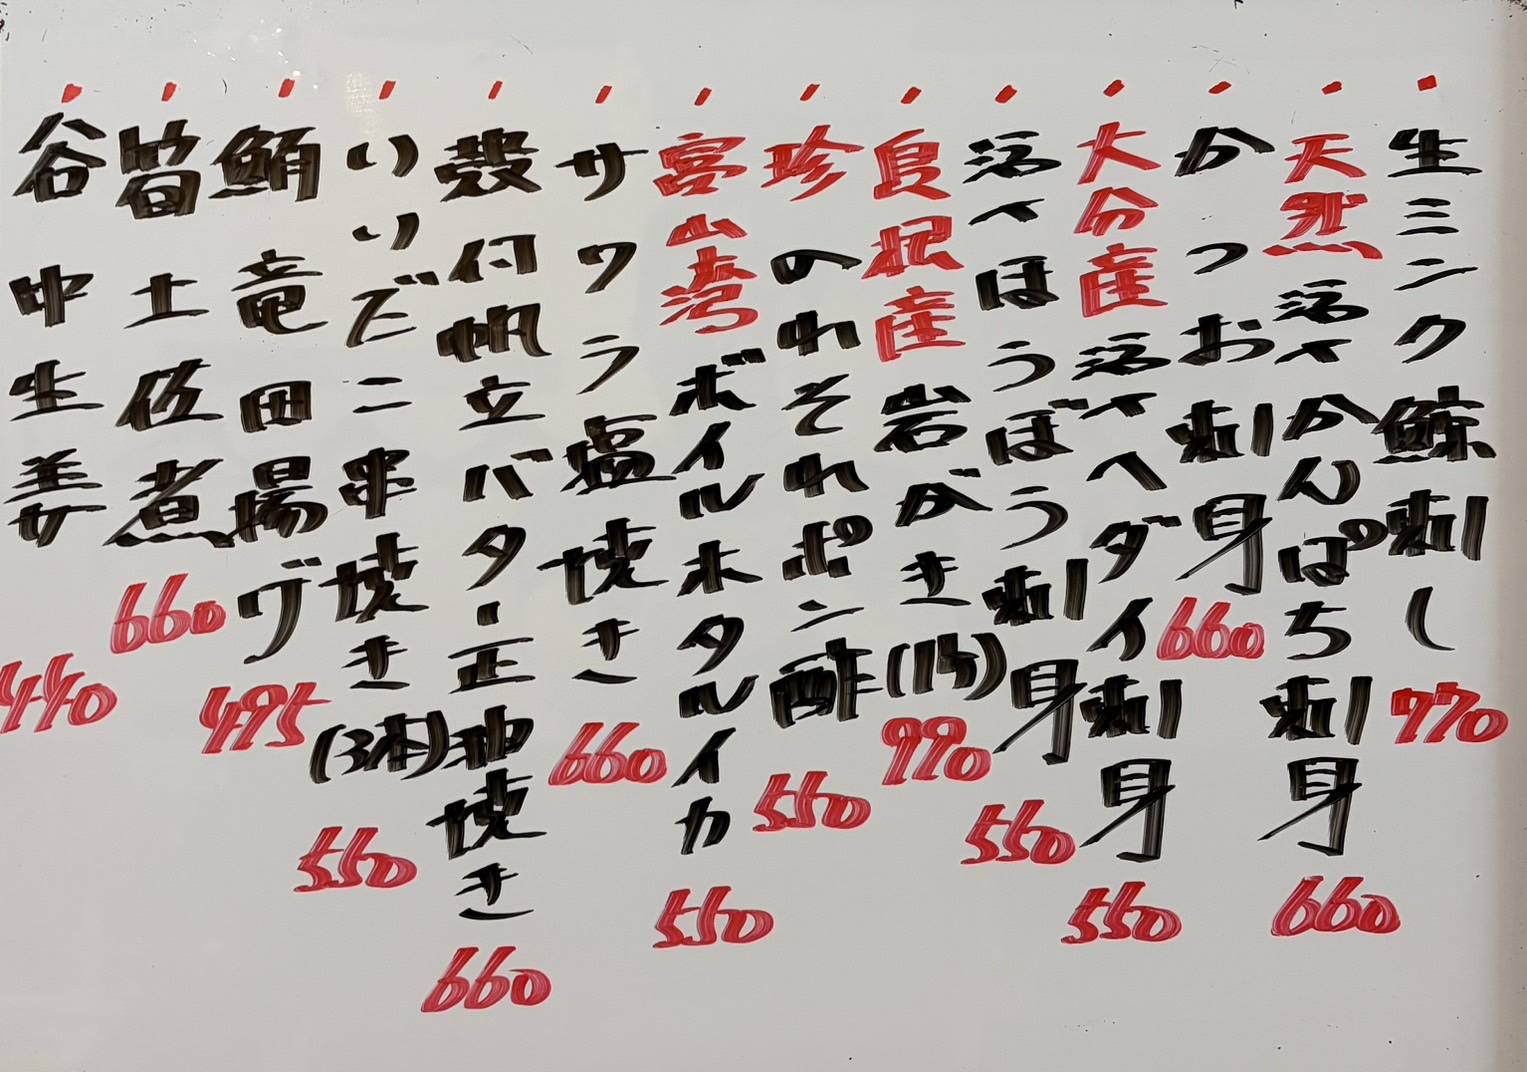 ・生ミンク鯨刺し 770
・天然活〆かんぱち刺身 660
・かつお刺身 660
・大分産活〆ヘダイ刺身 550
・活〆ほうぼう刺身 550
・良根産岩がき(1ケ) 990
・珍 のれそれポン酢 550
・富山湾ボイルホタルイカ 550
・サワラ塩焼き 660
・殻付帆立バター正油焼き 660
・いいだこ串焼き(3本) 550
・鮪竜田揚げ 495
・筍土佐煮 660
・谷中生姜 440